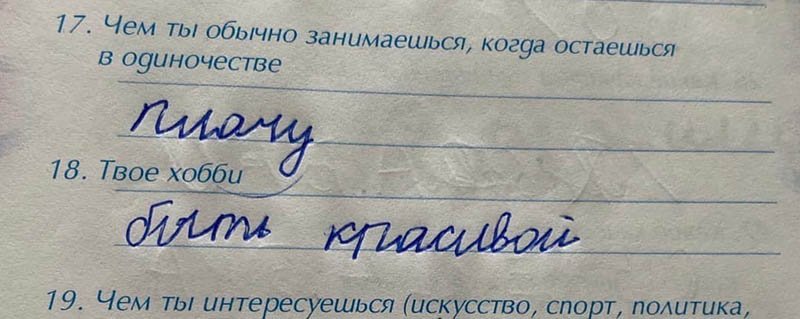 17. Чем ты обычно занимаешься, когда остаешься
в одиночестве
плачу
18. Твое хобби
быть красивой
19. Чем ты интересуешься (искусство, спорт, политика,